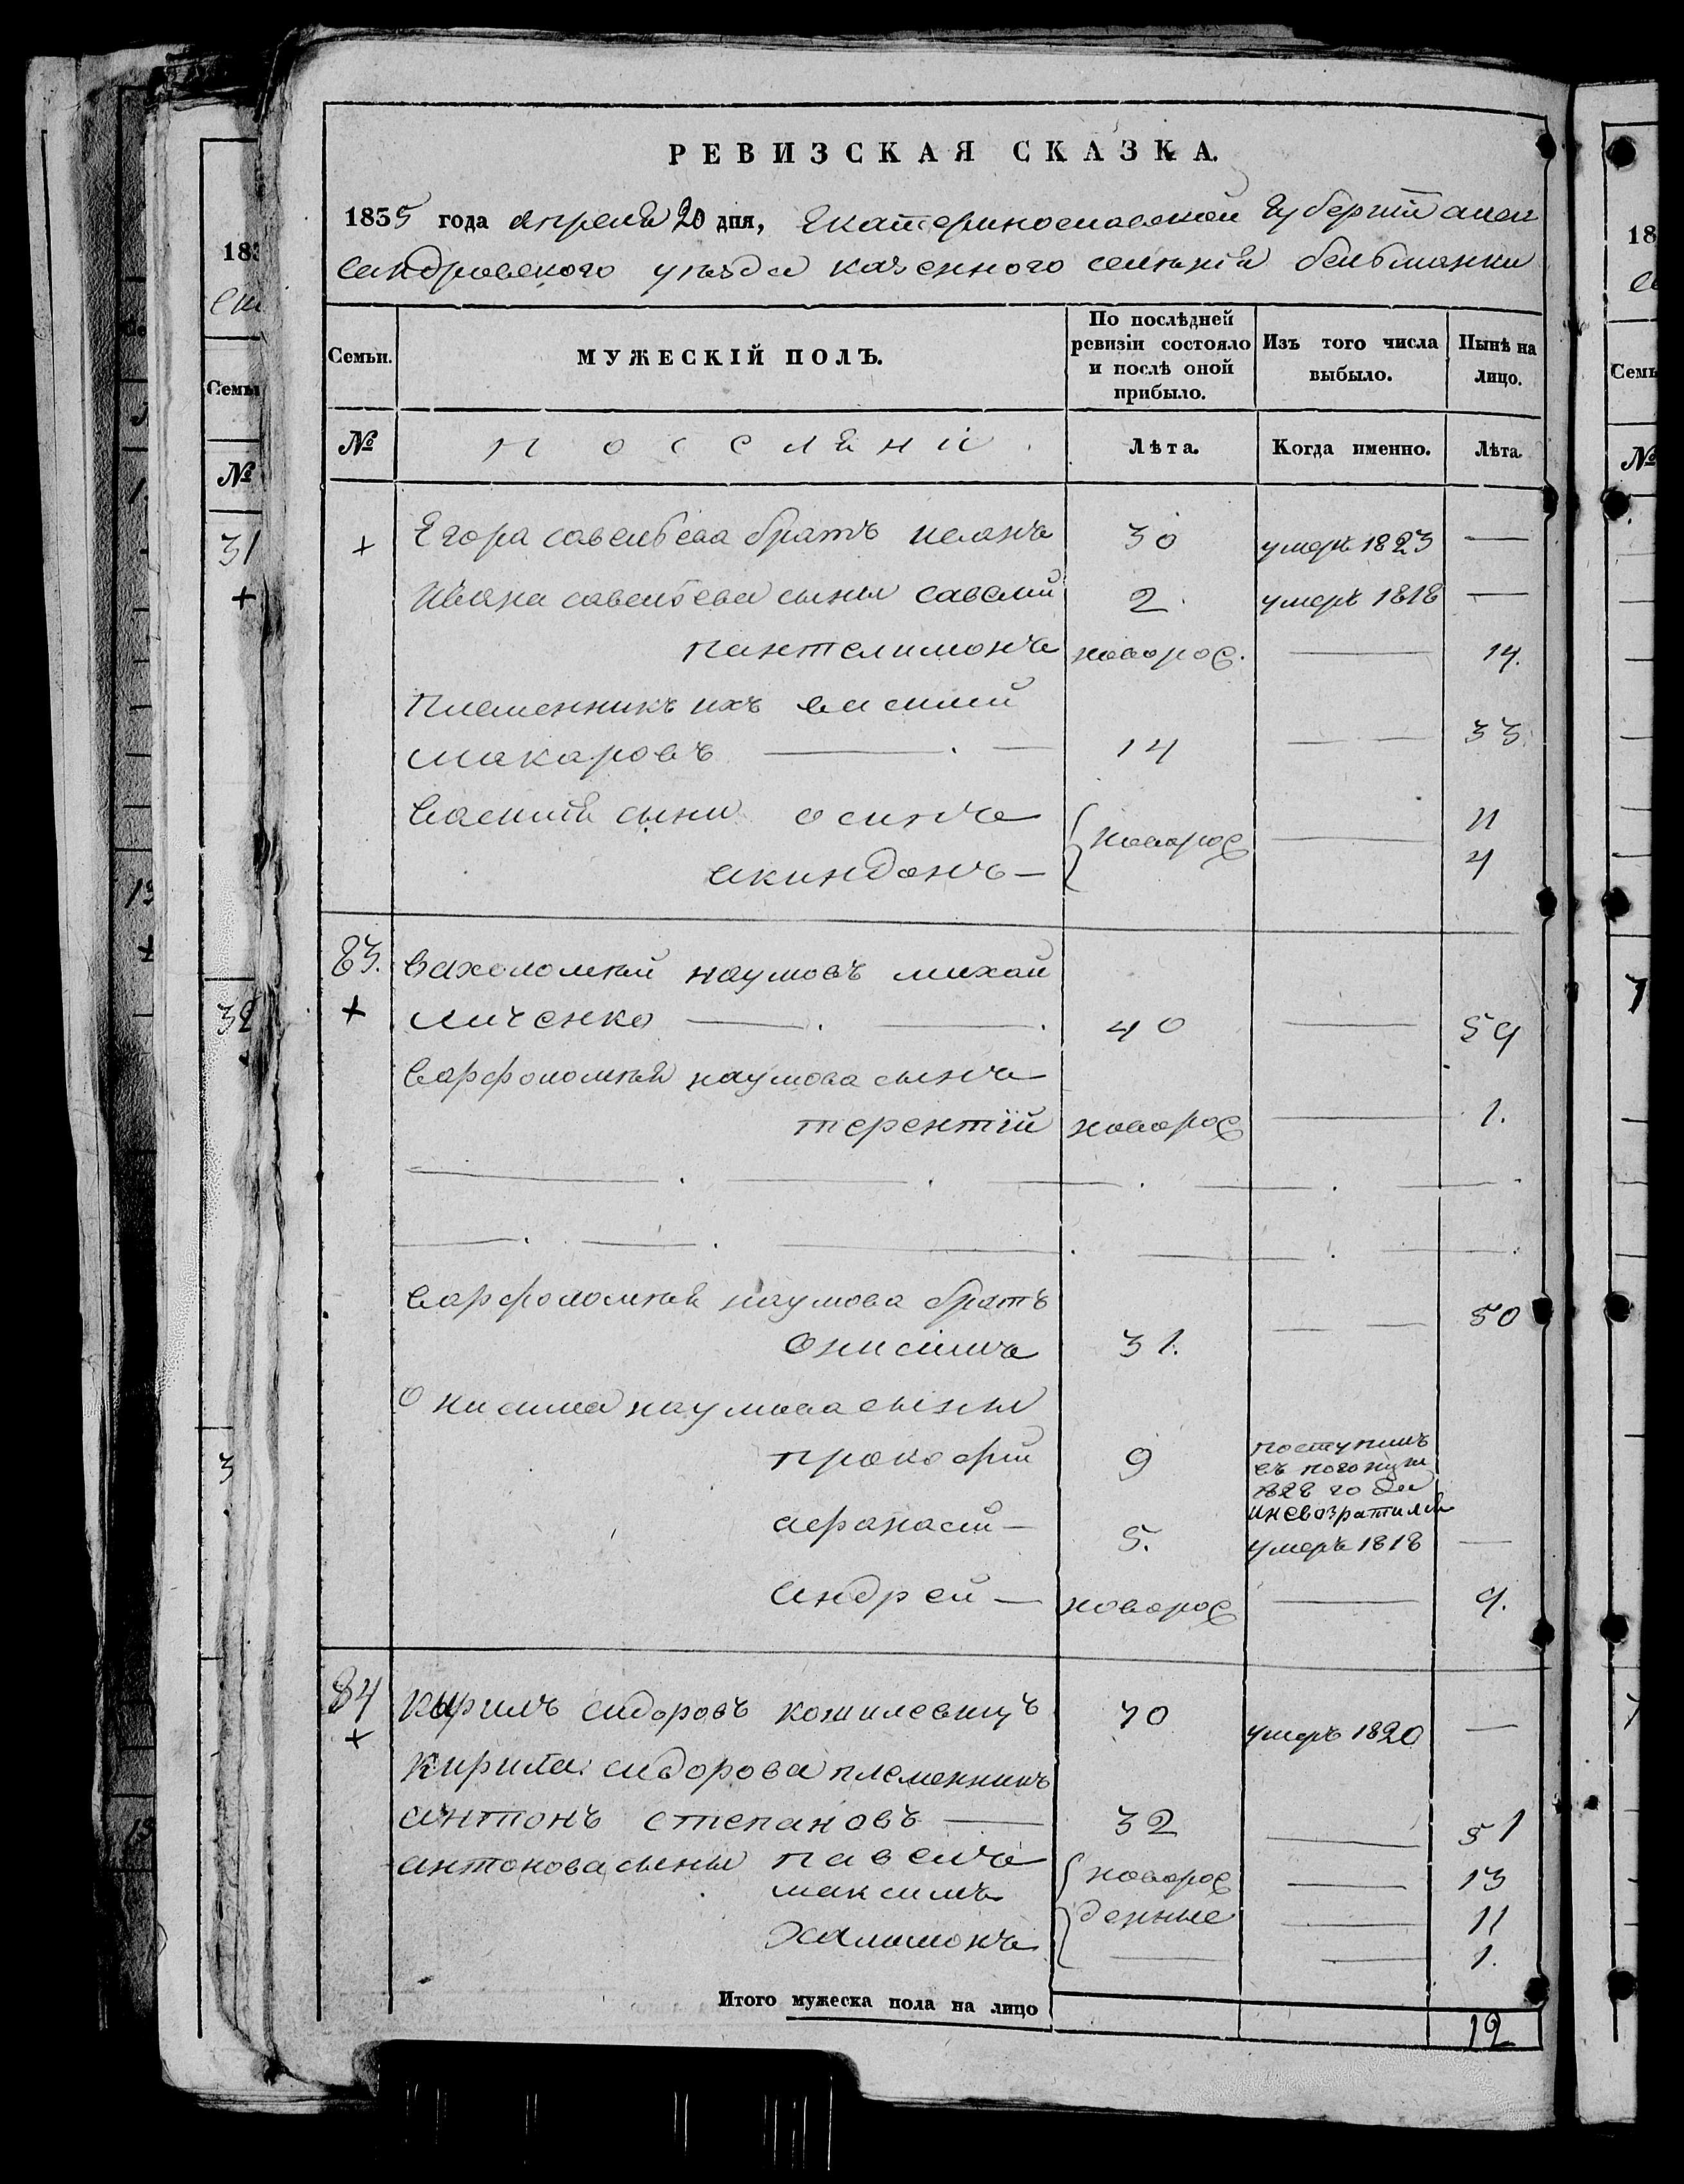 РЕВИЗСКАЯ СКАЗКА.
1835 года апреля 20 дня, Екатеринославской губернии алек
сандровского уѣзда казенного селѣния бельманки
Семьи. МУЖЕСКІЙ ПОЛЪ. По послѣдней ревизіи состояло и послѣ оной прибыло. Изъ того числа выбыло. Нынѣ на лицо.
№ Лѣта. Когда именно. Лѣта.
+ Егора савельева братъ иванъ 30 умеръ 1823 —
Ивана савельева сыны савелий 2. умеръ 1818 —
пантелимонъ новорож. — 14.
Племенникъ ихъ василий
макаровъ — 14 — 33.
василия сыны осипъ новорож — 11
акиндонъ — 4
83. вахоломѣй наумовъ михай
+ личенко — 40 — 59
варфоломѣя наумова сынъ
терентій новорож — 1.
варфоломѣя наумова братъ 50
Онисимъ 31. —
Онисима наумова сыны
прокофий 9 поступилъ
въ погонцы
1828 года
и невозратился
афанасий — 5. умеръ 1818 —
андрей — новорож — 9.
84 Кирилъ сидоровъ 70 умеръ 1820 —
+ Кирила сидорова племенникъ
антонъ степановъ — 32 — 51
антонова сыны павелъ новорож — 13
максимъ денные — 11
Халимонъ — — 1.
Итого мужеска пола на лицо 12
18
Семьи
№
31
+
32
3
18
Семь
№